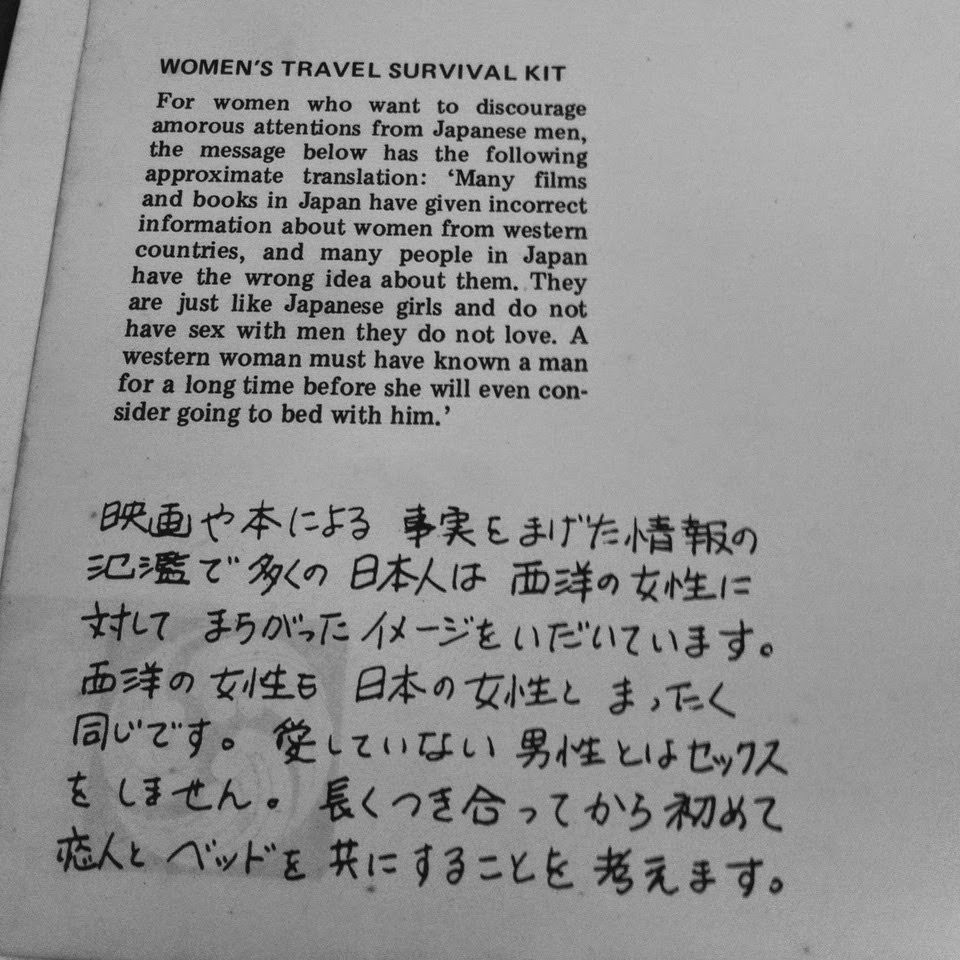 WOMEN'S TRAVEL SURVIVAL KIT
For women who want to discourage
amorous attentions from Japanese men,
the message below has the following
approximate translation: 'Many films
and books in Japan have given incorrect
information about women from western
countries, and many people in Japan
have the wrong idea about them. They
are just like Japanese girls and do not
have sex with men they do not love. A
western woman must have known a man
for a long time before she will even con-
sider going to bed with him.'
映画や本による 事実をまげた情報の
氾濫で多くの 日本人は 西洋の女性に
対して まちがった イメージを いだいています。
西洋の女性も 日本の女性と まったく
同じです。 愛していない 男性とはセックス
をしません。 長くつき合ってから初めて
恋人と ベッドを 共にすることを 考えます。